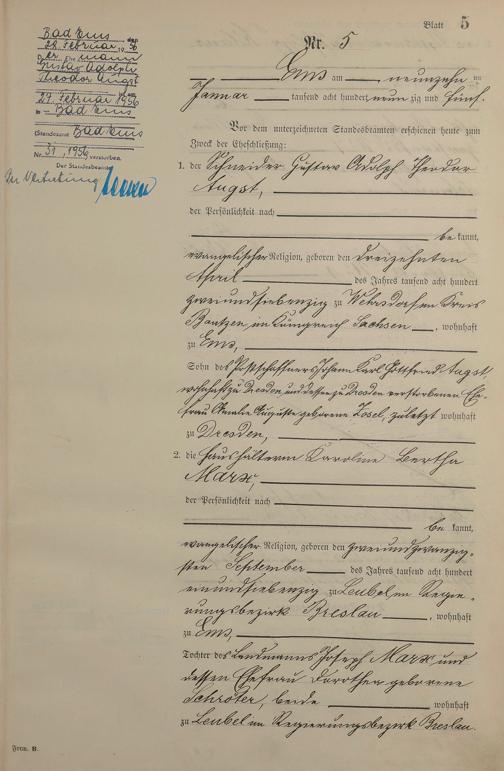 Blatt 5
Bad Ems
28. Februar 1956
Der Ehemann
Gustav Adolph
Theodor Augst
29. Februar 1956
in Bad Ems
(Standesamt Bad Ems
Nr. 31, 1956, verstorben.
Der Standesbeamte
In Vertretung
Nr. 5
Ems am neunzehnten
Januar tausend acht hundert neunzig und fünf.
Vor dem unterzeichneten Standesbeamten erschienen heute zum
Zweck der Eheschließung:
1. der Schneider Gustav Adolph Theodor
Augst,
der Persönlichkeit nach
be kannt,
evangelischer Religion, geboren den dreizehnten
April des Jahres tausend acht hundert
zweiundsiebenzig zu Wehrsdorf im Kreis
Bautzen im Königreich Sachsen, wohnhaft
zu Ems,
Sohn des Postschaffners Johann Karl Gottfried Augst,
wohnhaft zu Dresden und dessen zu Dresden verstorbenen Ehe-
frau Amalie Auguste geborene Zosel, zuletzt wohnhaft
zu Dresden,
2. die Haushälterin Karoline Bertha
Marx,
der Persönlichkeit nach
be kannt,
evangelischer Religion, geboren den zweiundzwanzig-
sten September des Jahres tausend acht hundert
einundsiebenzig zu Leubel im Regie-
rungsbezirk Breslau, wohnhaft
zu Ems,
Tochter des Landmanns Joseph Marx und
dessen Ehefrau Dorothea geborene
Schröter, beide wohnhaft
zu Leubel im Regierungsbezirk Breslau.
Form. B.